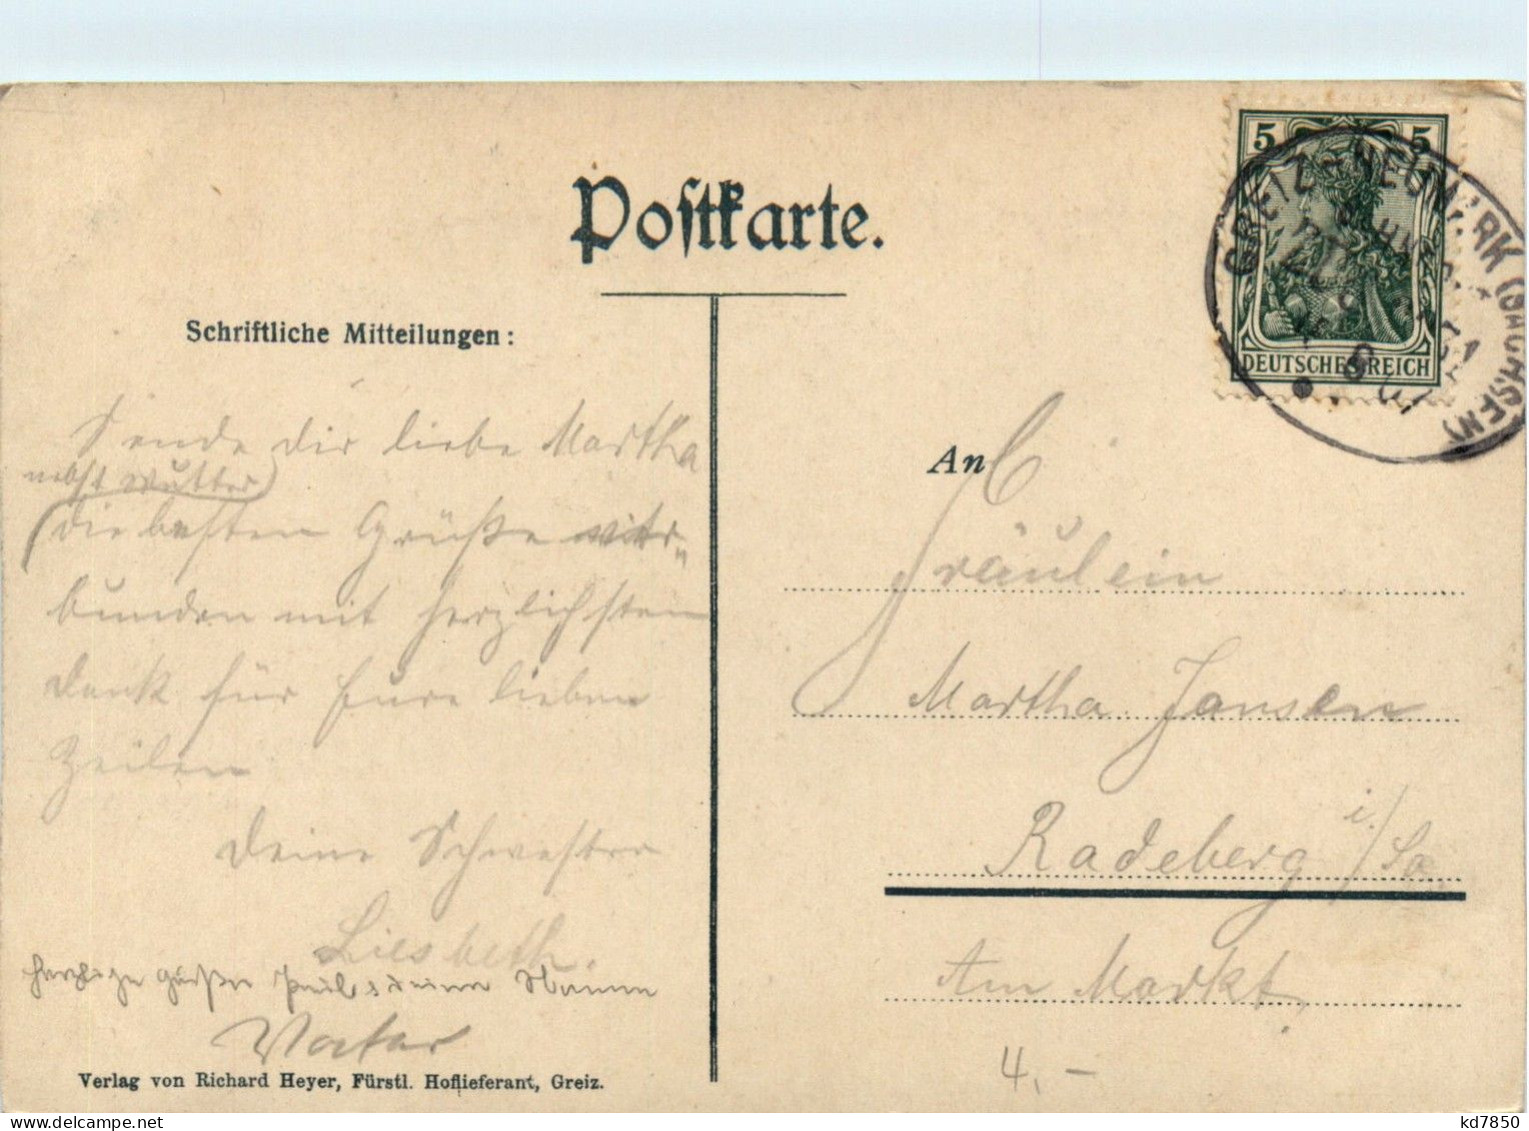 Postkarte.
Schriftliche Mitteilungen:
Sende dir liebe Martha
nebst Mutter
die besten Grüße ver„
bunden mit herzlichsten
Dank für Eure lieben
Zeilen
Deine Schwester
Liesbeth.
herzliche Grüße
Vater
Verlag von Richard Heyer, Fürstl. Hoflieferant, Greiz.
5 5
DEUTSCHES REICH
GREIZ-NEUMARK (SACHSEN)
An
Fräulein
Martha Jansen
Radeberg i/Sa.
Am Markt
4.-
kd7850